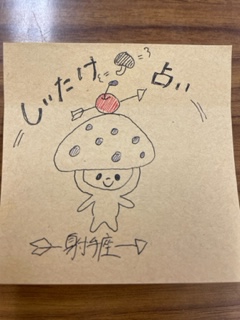 しいたけ占い
射手座